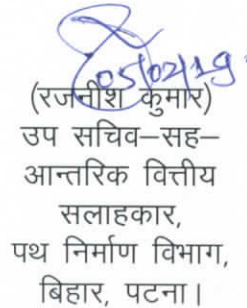 05/02/19
(रजनीश कुमार)
उप सचिव–सह–
आन्तरिक वित्तीय
सलाहकार,
पथ निर्माण विभाग,
बिहार, पटना।